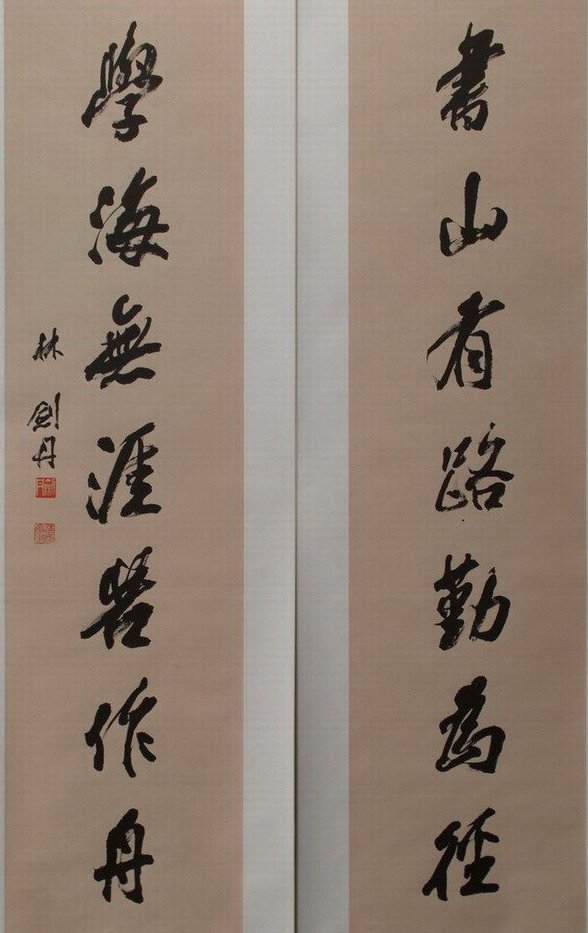 書山有路勤為徑
學海無涯苦作舟
林劍丹